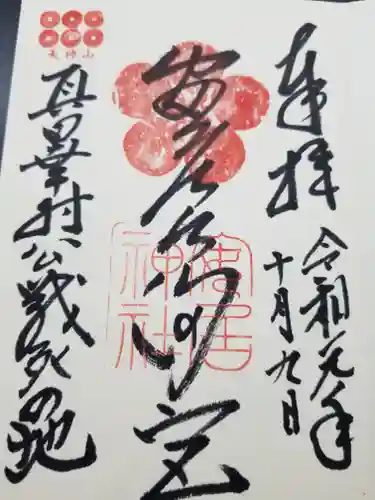 奉拝
令和元年
十月九日
安居
天神山
真田幸村公戦死の地
安居
神社